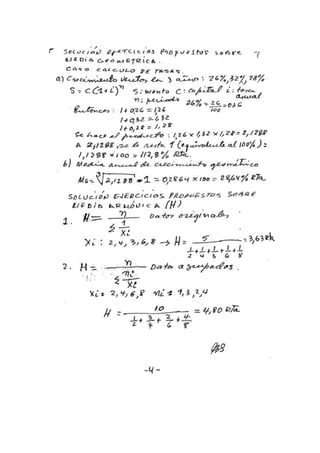 Solución ejercicios propuestos sobre
Media Geométrica.
Caso Calculo de tasas.
a) Crecimiento ventas en 3 años: 26%, 32%, 28%
S = C(1+i)ⁿ S: Monto C: Capital i: tasa
anual
n: periodo 26% = 26/100 = 0,26
Entonces: 1+0,26 = 1,26
1+0,32 = 1,32
1+0,28 = 1,28
Se hace el producto: 1,26 x 1,32 x 1,28 = 2,1288
A 2,1288 se le resta 1 (equivalente al 100%):
1,1288 x 100 = 112,8% Rta.
b) Media anual de crecimiento geométrico
MG = ∛2,1288 - 1 = 0,2864 x 100 = 28,64% Rta.
Solución Ejercicios Propuestos Sobre
Media Armónica (H)
1. H = n / Σ 1/Xi Datos originales
Xi: 2, 4, 3, 6, 8 → H = 5 / 1/2+1/4+1/3+1/6+1/8 = 3,63 Rta.
2. H = n / Σ ni/Xi Datos agrupados.
Xi = 2, 4, 6, 8 ni = 1, 3, 2, 4
H = 10 / 1/2+3/4+2/6+4/8 = 4,80 Rta.
-4-